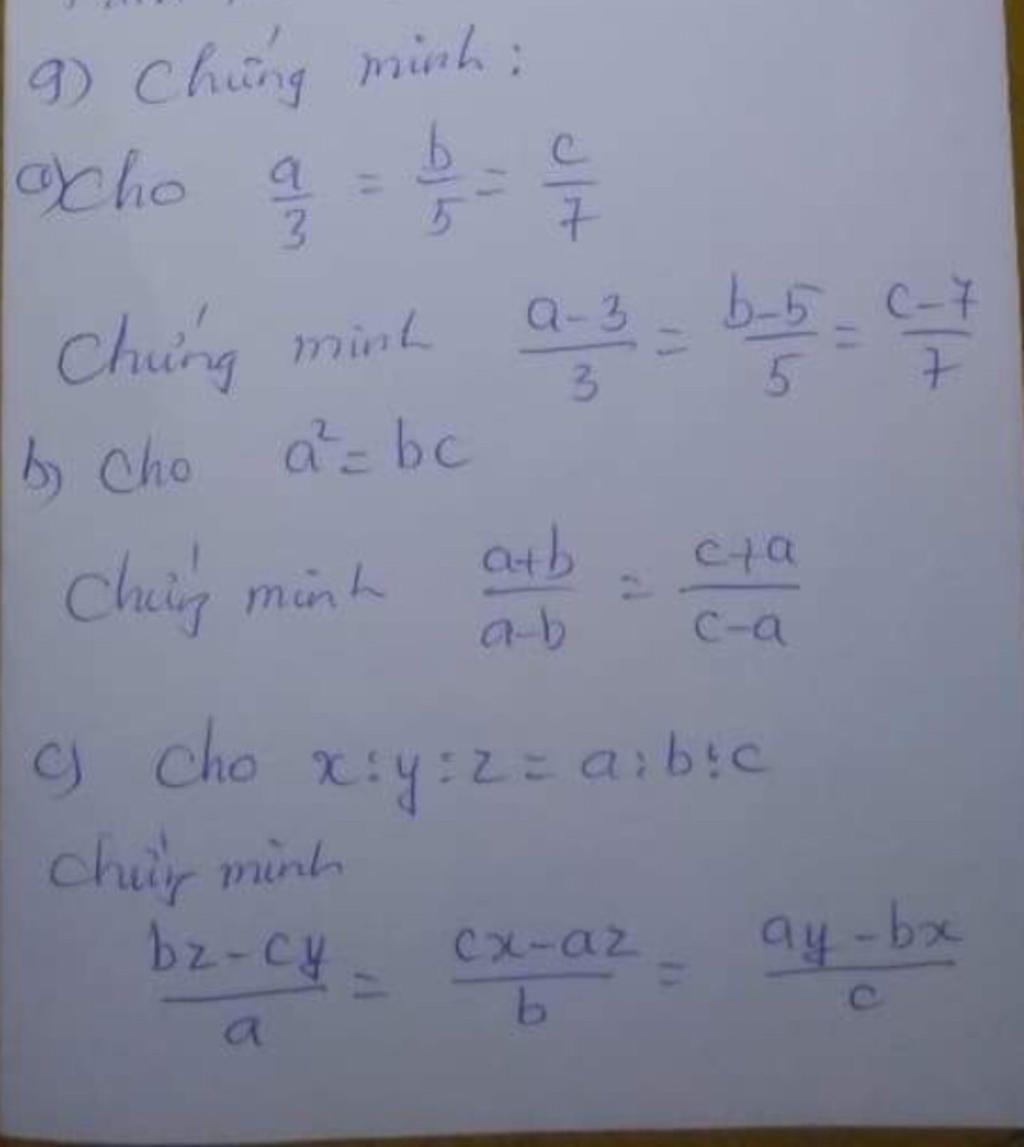 9) Chứng minh:
a) Cho a/3 = b/5 = c/7
Chứng minh a-3/3 = b-5/5 = c-7/7
b) Cho a² = bc
Chứng minh a+b/a-b = c+a/c-a
c) Cho x:y:z = a:b:c
Chứng minh
bz-cy/a = cx-az/b = ay-bx/c